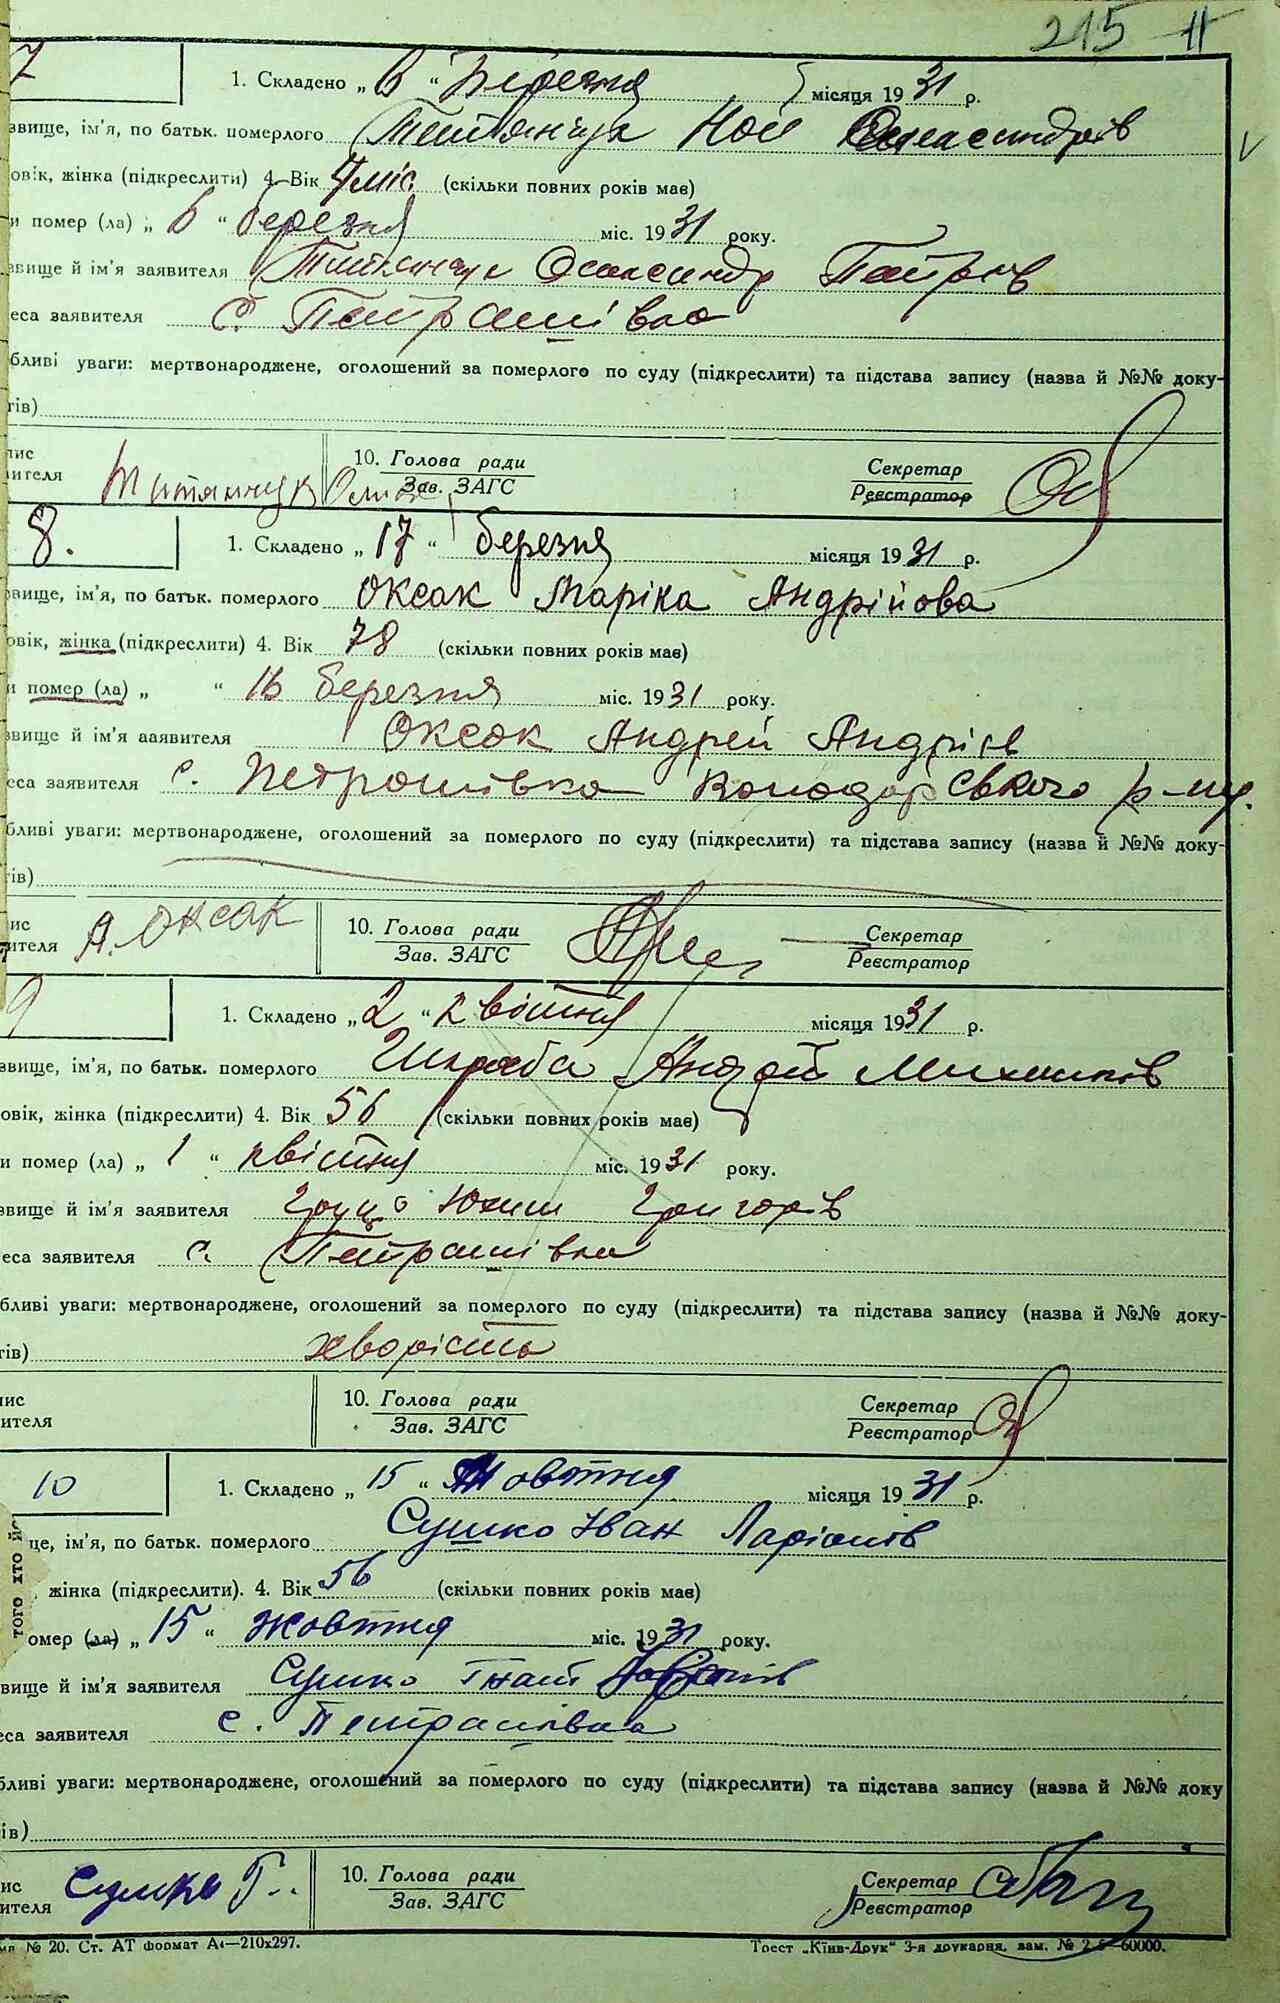 215 11
7
1. Складено „ 6 “ Березня місяця 1931 р.
звище, ім'я, по батьк. померлого Титянчук Ной Олександрів
овік, жінка (підкреслити) 4. Вік 4 міс. (скільки повних років має)
и помер (ла) „ 6 “ березня міс. 1931 року.
звище й ім'я заявителя Титянчук Олександр Петрів
еса заявителя с. Петрашівка
бливі уваги: мертвонароджене, оголошений за померлого по суду (підкреслити) та підстава запису (назва й №№ доку-
тів)
пис
ителя Титянчук 10. Голова ради
Зав. ЗАГС
Секретар
Реєстратор
8.
1. Складено „ 17 “ березня місяця 1931 р.
звище, ім'я, по батьк. померлого Оксак Маріка Андрійова
овік, жінка (підкреслити) 4. Вік 78 (скільки повних років має)
и помер (ла) „ “ 16 березня міс. 1931 року.
звище й ім'я заявителя Оксак Андрей Андріїв
еса заявителя с. Петрошівка Володарського р-ну.
бливі уваги: мертвонароджене, оголошений за померлого по суду (підкреслити) та підстава запису (назва й №№ доку-
тів)
ис
ителя А. Оксак 10. Голова ради
Зав. ЗАГС
Секретар
Реєстратор
9
1. Складено „ 2 “ квітня місяця 1931 р.
звище, ім'я, по батьк. померлого Шкраба Андрій
овік, жінка (підкреслити) 4. Вік 56 (скільки повних років має)
и помер (ла) „ 1 “ квітня міс. 1931 року.
звище й ім'я заявителя Юхим Григорів
еса заявителя с. Петрашівка
бливі уваги: мертвонароджене, оголошений за померлого по суду (підкреслити) та підстава запису (назва й №№ доку-
тів) хворість
пис
ителя 10. Голова ради
Зав. ЗАГС
Секретар
Реєстратор
10
1. Складено „ 15 “ Жовтня місяця 1931 р.
це, ім'я, по батьк. померлого Сушко Іван Ларіонів
, жінка (підкреслити). 4. Вік 56 (скільки повних років має)
того хто й
омер (ла) „ 15 “ жовтня міс. 1931 року.
звище й ім'я заявителя Сушко Гнат
еса заявителя с. Петрашівка
бливі уваги: мертвонароджене, оголошений за померлого по суду (підкреслити) та підстава запису (назва й №№ доку
ів)
ис
ителя Сушко Г.. 10. Голова ради
Зав. ЗАГС
Секретар
Реєстратор
№ 20. Ст. АТ формат А4—210х297.
Трест „Київ-Друк“ 3-я друкарня, зам. № 60000.